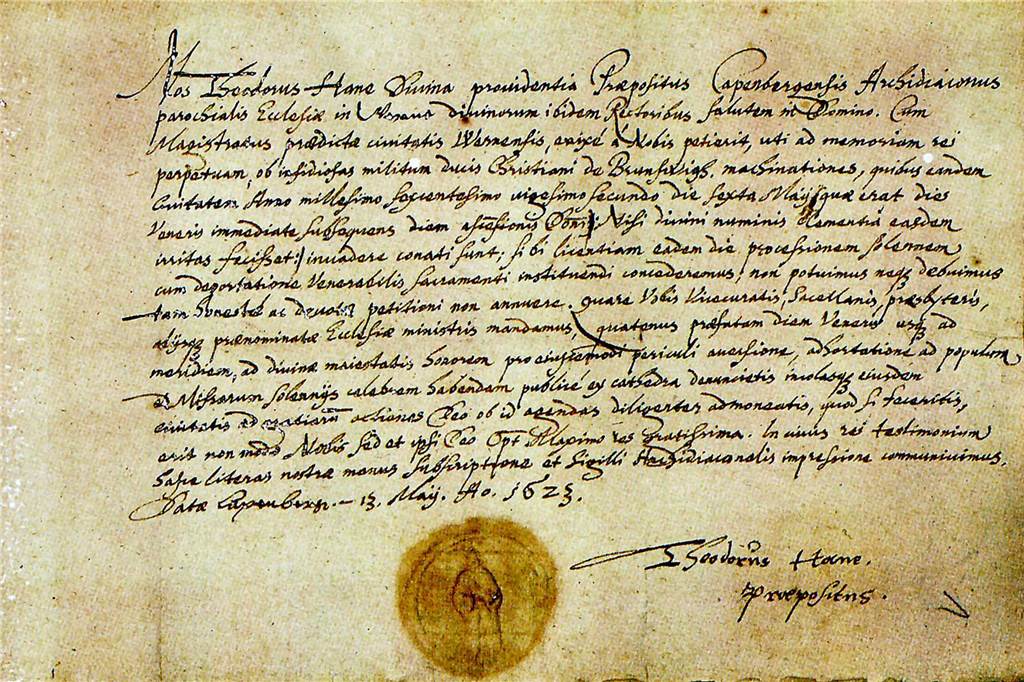 Nos Theodorus Hane Divina providentia Præpositus Capenbergensis Archidiaconus
parochialis Ecclesiæ in Werne divinorum ibidem Rectoribus salutem in Domino. Cum
Magistratus prædictæ civitatis Wernensis, enixè à Nobis petierit, uti ad memoriam rei
perpetuam, ob insidiosas militum ducis Christiani de Brunsvigh. machinationes, quibus eandem
Civitatem Anno millesimo sexcentesimo vigesimo secundo die sexta Maij quæ erat dies
Veneris immediate subsequens diem ascēsionis Dōni, Nisi divini numinis clementia easdem
irritas fecisset, invadere conati sunt; sibi licentiam eadem die processionem solennem
cum deportatione Venerabilis Sacramenti instituendi concederemus, non potuimus neqz debuimus
tam honestæ ac devotæ petitioni non annuere. Quare Vobis Vivecuratis, Sacellanis, præsbyteris,
alijsqz prænominatæ Ecclesiæ ministris mandamus, quatenus præfatam diem Veneris usqz ad
meridiem, ad divinæ maiestatis honorem pro eiuscemodi periculi aversione, adhortatione ad populum
et Missarum solennijs celebrem habendam publicè ex cathedra denuncietis incolasqz eiusdem
civitatis ad gratiarum actiones Deo ob id agendas diligenter admoneatis, quod si feceritis,
erit non modo Nobis sed et ipsi Deo Opt. Maximo res gratissima. In cuius rei testimonium
hasce literas nostræ manus subscriptione et Sigilli Archidiaconalis impressione communivimus.
Datæ Capenberg. - 13. Maij. Ao. 1623.
Theodorus Hane.
Præpositus.